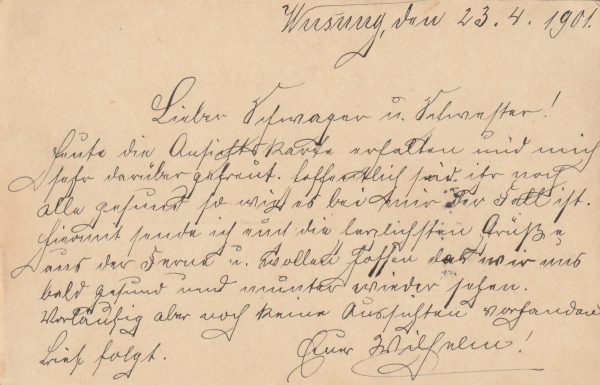 Wusung, den 23.4.1901.
Lieber Schwager u. Schwester!
Heute die Ansichtskarte erhalten und mich
sehr darüber gefreut. hoffentlich seid ihr noch
alle gesund so wie es bei mir der Fall ist.
hiermit sende ich euch die herzlichsten Grüße
aus der Ferne u. wollen hoffen das wir uns
bald gesund und munter wieder sehen.
Vorläufig aber noch keine Aussichten vorhanden
Brief folgt. Euer Wilhelm!